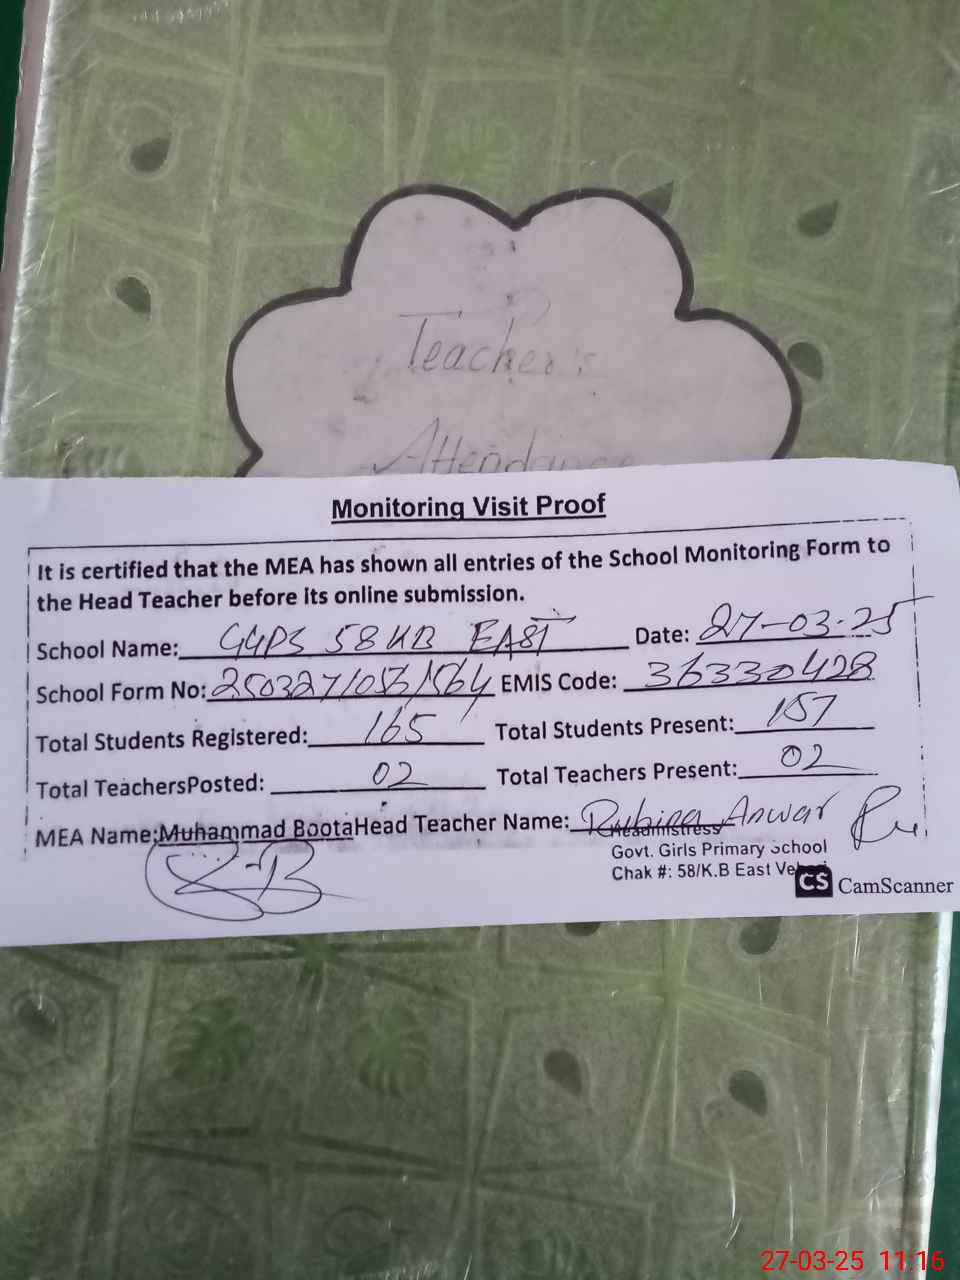 Teacher's
Attendance
Monitoring Visit Proof
It is certified that the MEA has shown all entries of the School Monitoring Form to
the Head Teacher before its online submission.
School Name: GGPS 58 KB EAST Date: 27-03-25
School Form No: 250327/053/564 EMIS Code: 36330428
Total Students Registered: 165 Total Students Present: 157
Total TeachersPosted: 02 Total Teachers Present: 02
MEA Name: Muhammad Boota Head Teacher Name: Rubina Anwar
Headmistress
Govt. Girls Primary School
Chak #: 58/K.B East
CS CamScanner
27-03-25 11:16